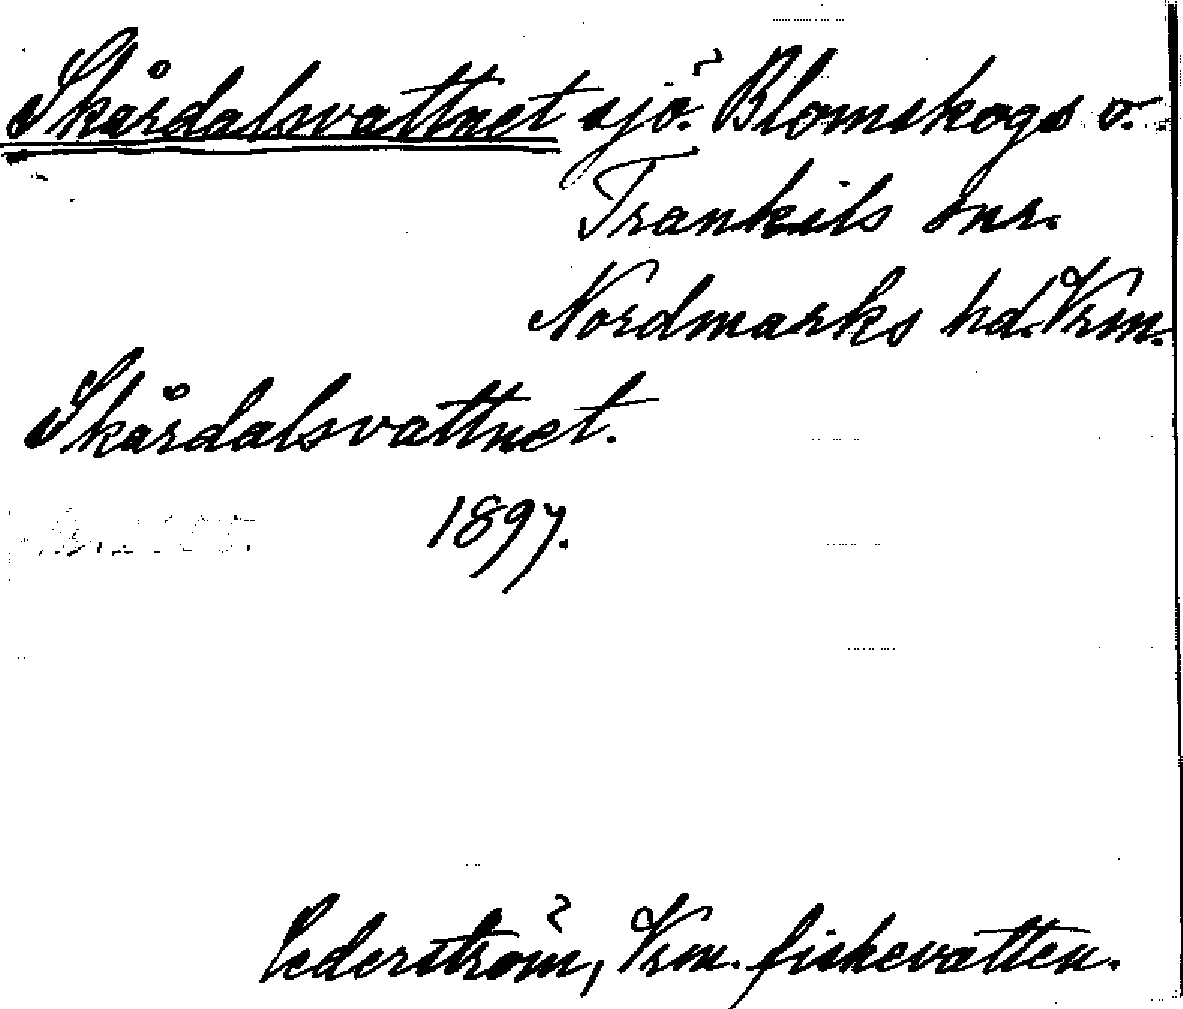 Skårdalsvattnet sjö. Blomskogs o.
Trankils snr.
Nordmarks hd. Vrm.
Skårdalsvattnet.
1897.
Cederström, Vrm. fiskevatten.